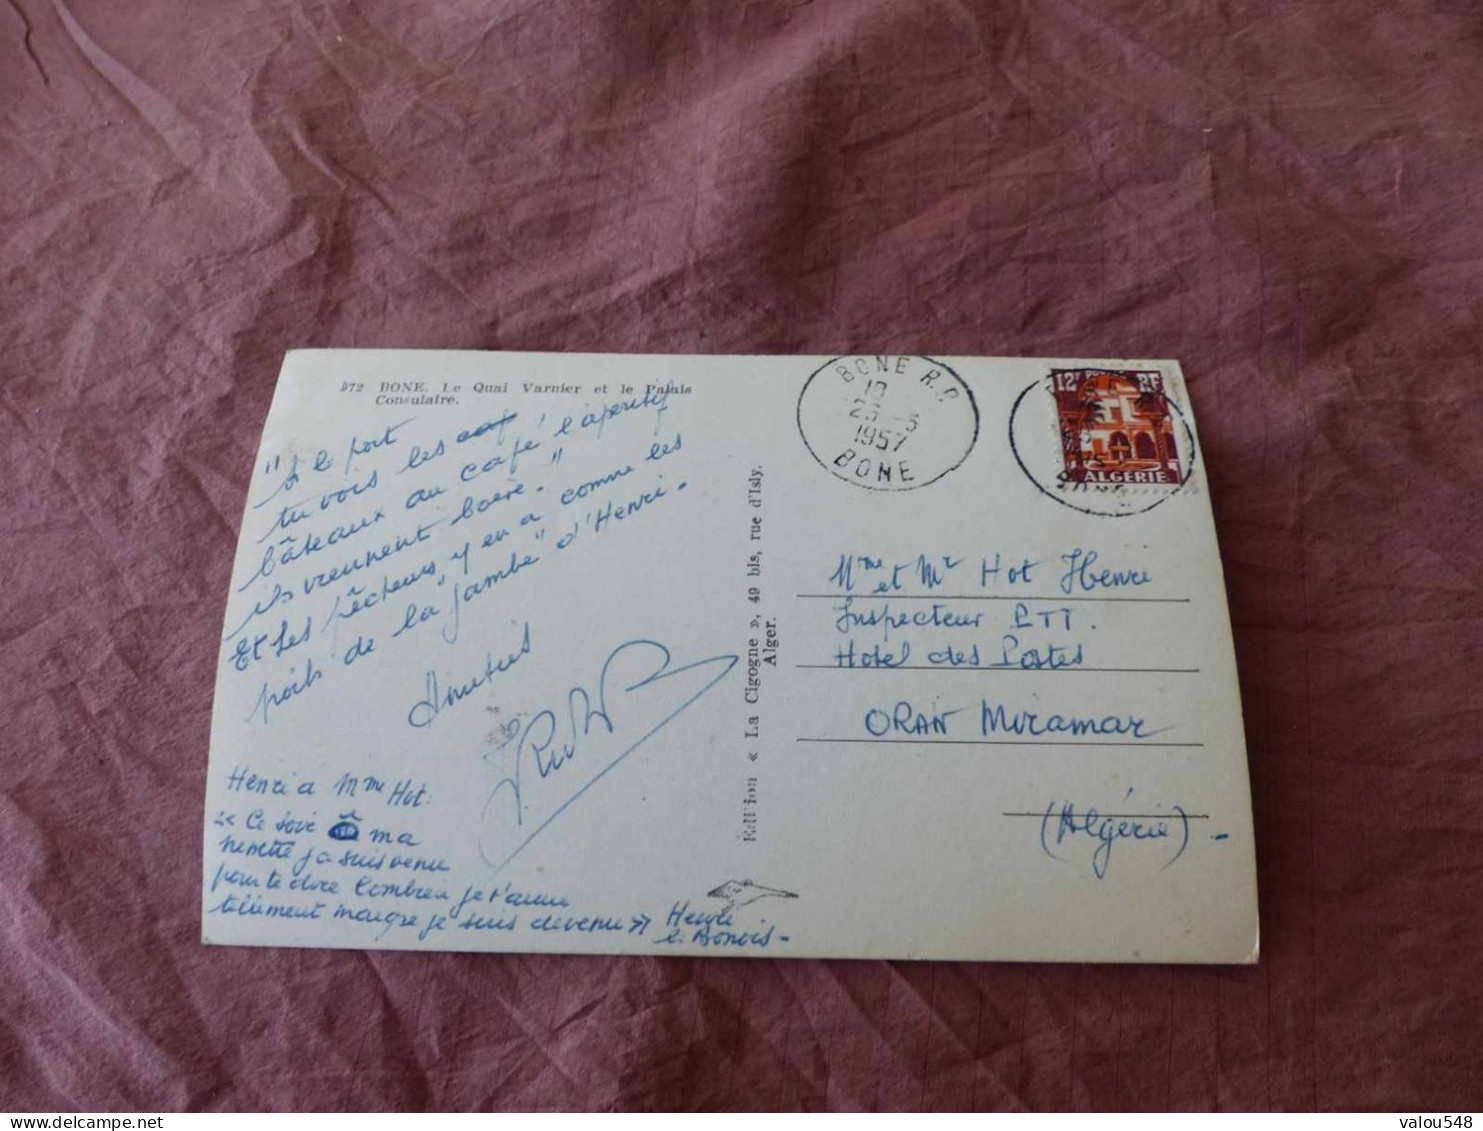 972 BONE. Le Quai Varnier et le Palais
Consulaire.
"A le port
tu vois les
bâteaux au café l'apéritif
ils viennent boire."
Et les pêcheurs y en a comme les
poils de la "jambe" d'Henri.
Amitiés
Henri a Mme Hot:
"Ce soir ma
je suis venu
pour te dire combien je t'aime
tellement maigre je suis devenu" Henri
le Bonois -
Edition « La Cigogne », 49 bis, rue d'Isly.
Alger.
BONE R.P.
18
25 -5
1957
BONE
12F POSTES RF
ALGERIE
Mme et Mr Hot Henri
Inspecteur PTT.
Hotel des Postes
ORAN Miramar
(Algérie) -
valou548